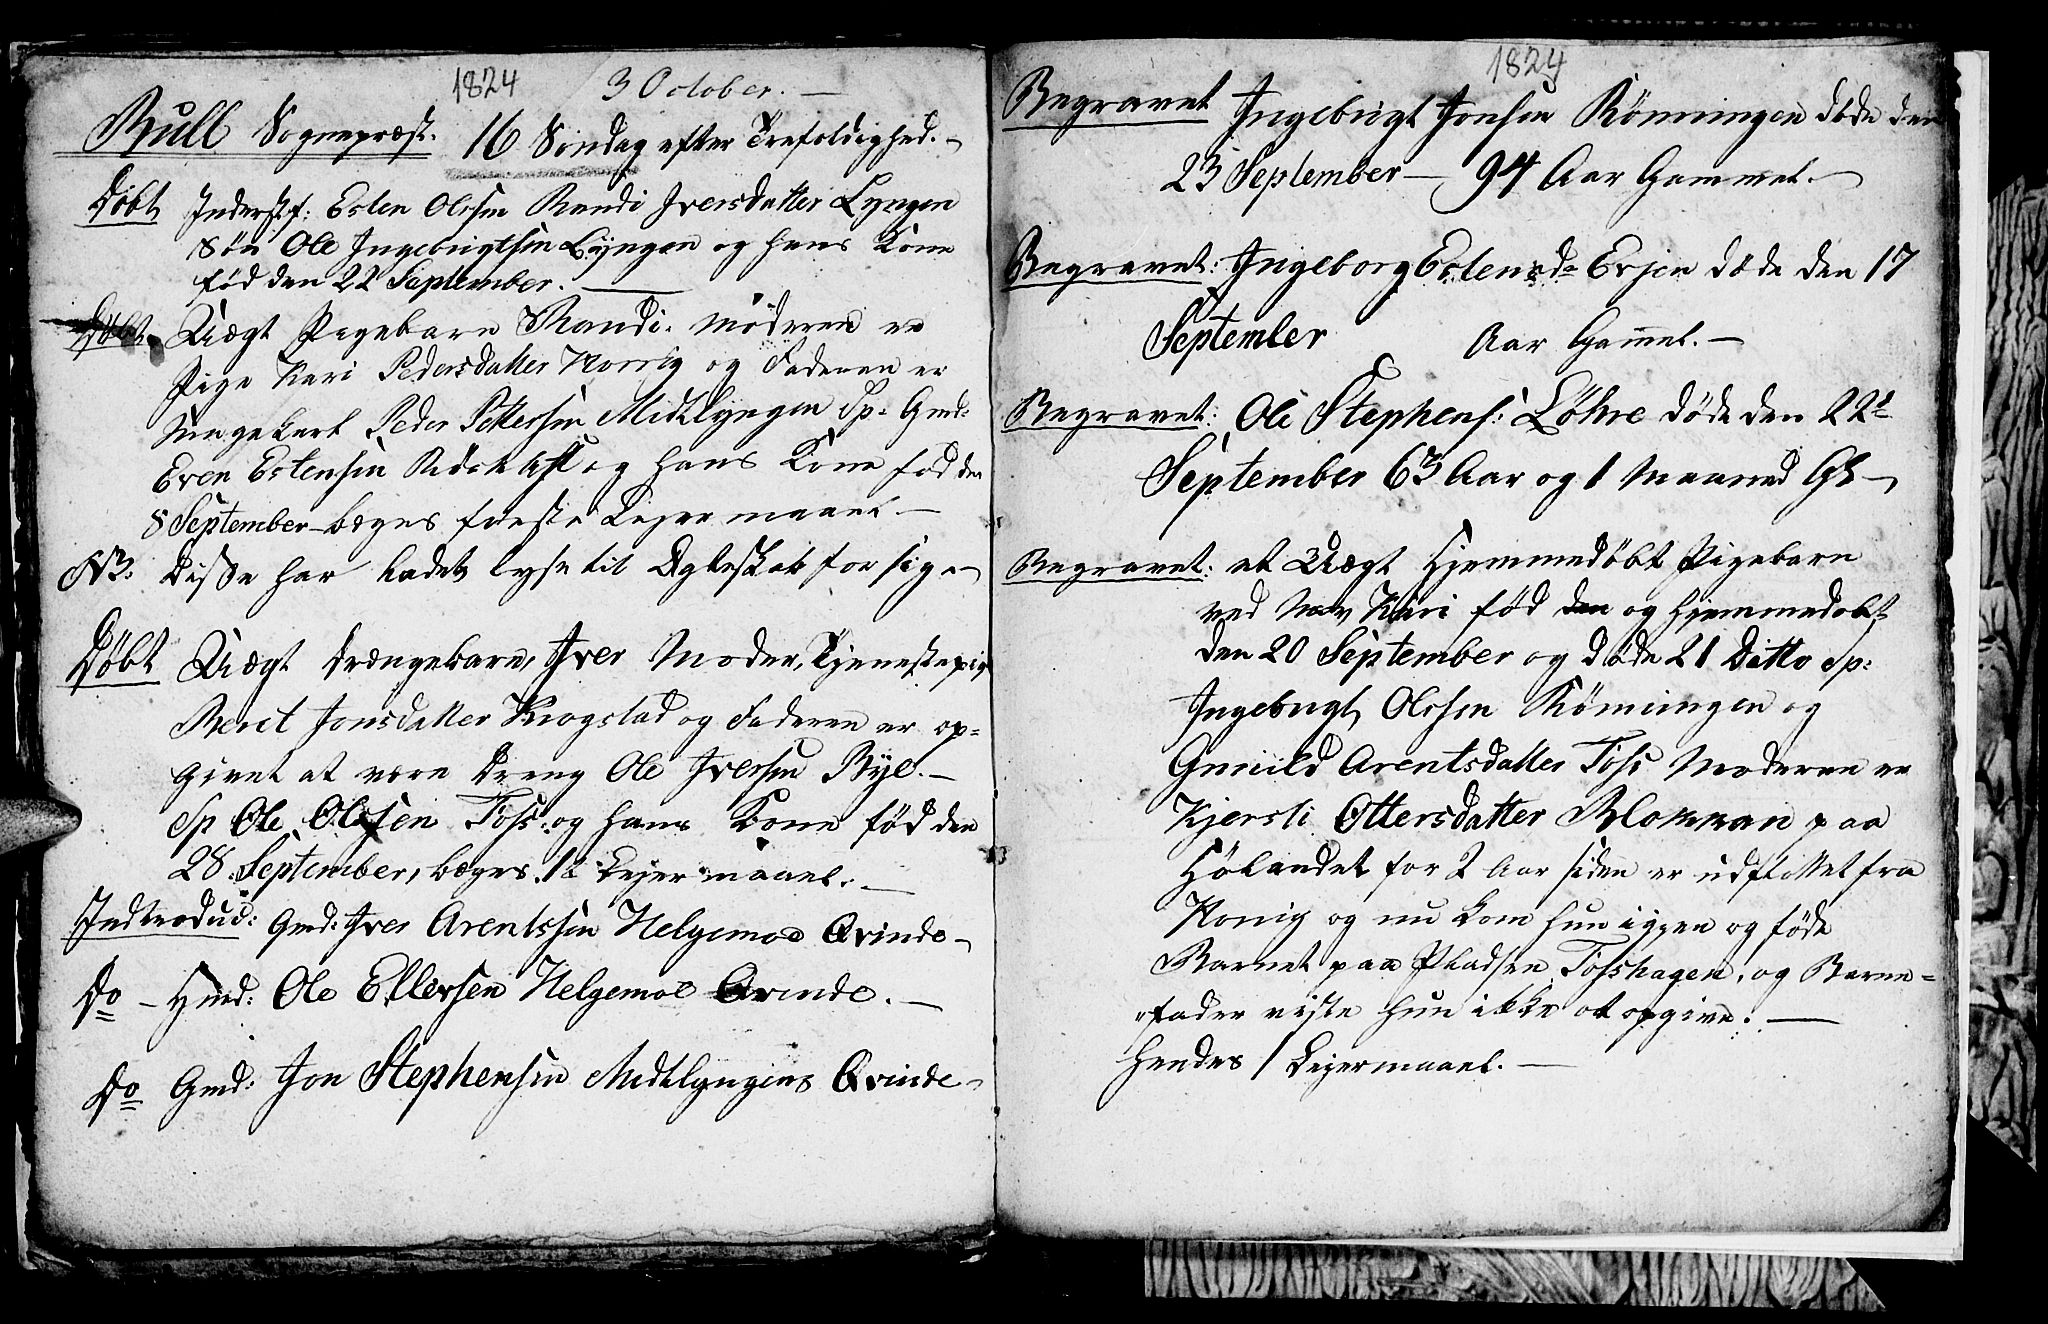 1824 3 October. —
Bull Sognepræst. 16 Søndag efter Trefoldighed. —
Døbt Inderstf: Esten Olssen Randi Iversdatter Lyngen
Søn Ole Ingebrigtsen Lyngen og hans Kone
fød den 22 September. —
Døbt Uægt Pigebarn Randi. Moderen er
Pige Kari Pedersdatter Horrig og Faderen er
Ungekarl Peder Pettersen Midtlyngen Sp: Gmd:
Even Estensen og hans Kone fød den
8 September begges første Leyermaael —
NB: Disse har ladet lyse til Ægteskab for sig —
Døbt Uægt Drængebarn, Iver Moder, Tjenestepige
Beret Jonsdatter Krogstad og Faderen er op-
givet at være Dreng Ole Iversen Bye. —
Sp Ole Olssen Foss: og hans Kone fød den
28 September, begges 1te Leyermaael. —
Indtroduc: Gmd: Iver Arentssen Helgemoe Qvinde —
Do — Hmd: Ole Ellersen Helgemoe Qvinde. —
Do Gmd: Jon Stephensen Midtlyngens Qvinde —
1824
Begravet Ingebrigt Jonsen Rønningen døde den
23 September — 94 Aar Gammel. —
Begravet: Ingeborg Estensdr Evjen døde den 17
September Aar Gamel. —
Begravet: Ole Stephens: Løhre døde den 22d
September 63 Aar og 1 Maaned Gl —
Begravet: et Uægt Hjemmedøbt Pigebarn
ved Nav Kari fød den og hjemmedøbt
den 20 September og døde 21 Ditto Sp:
Ingebrigt Olssen Rønningen og
Gunild Arentsdatter Foss Moderen er
Kjersti Ottersdatter Blokkan paa
Hølandet for 2 Aar siden er udfløttet fra
Horrig og nu kom hun igjen og føde
Barnet paa Pladsen Fosshagen, og Barne-
"fader viste hun ikke at opgive: —
hendes 1 Leyermaael. —